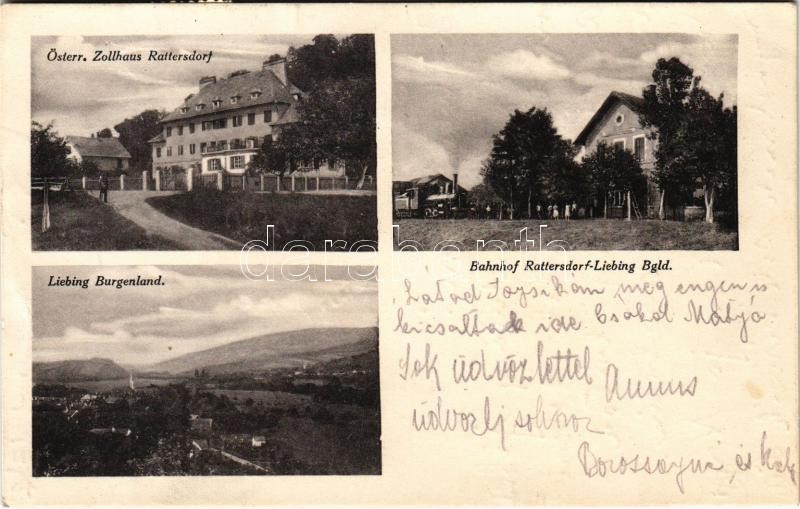 Österr. Zollhaus Rattersdorf
Bahnhof Rattersdorf-Liebing Bgld.
Liebing Burgenland.
darabanth
Látod Jozsikám még engem is
kicsaltak ide. Csókol Mátyó
Sok üdvözlettel
üdvözlj sokszor
és